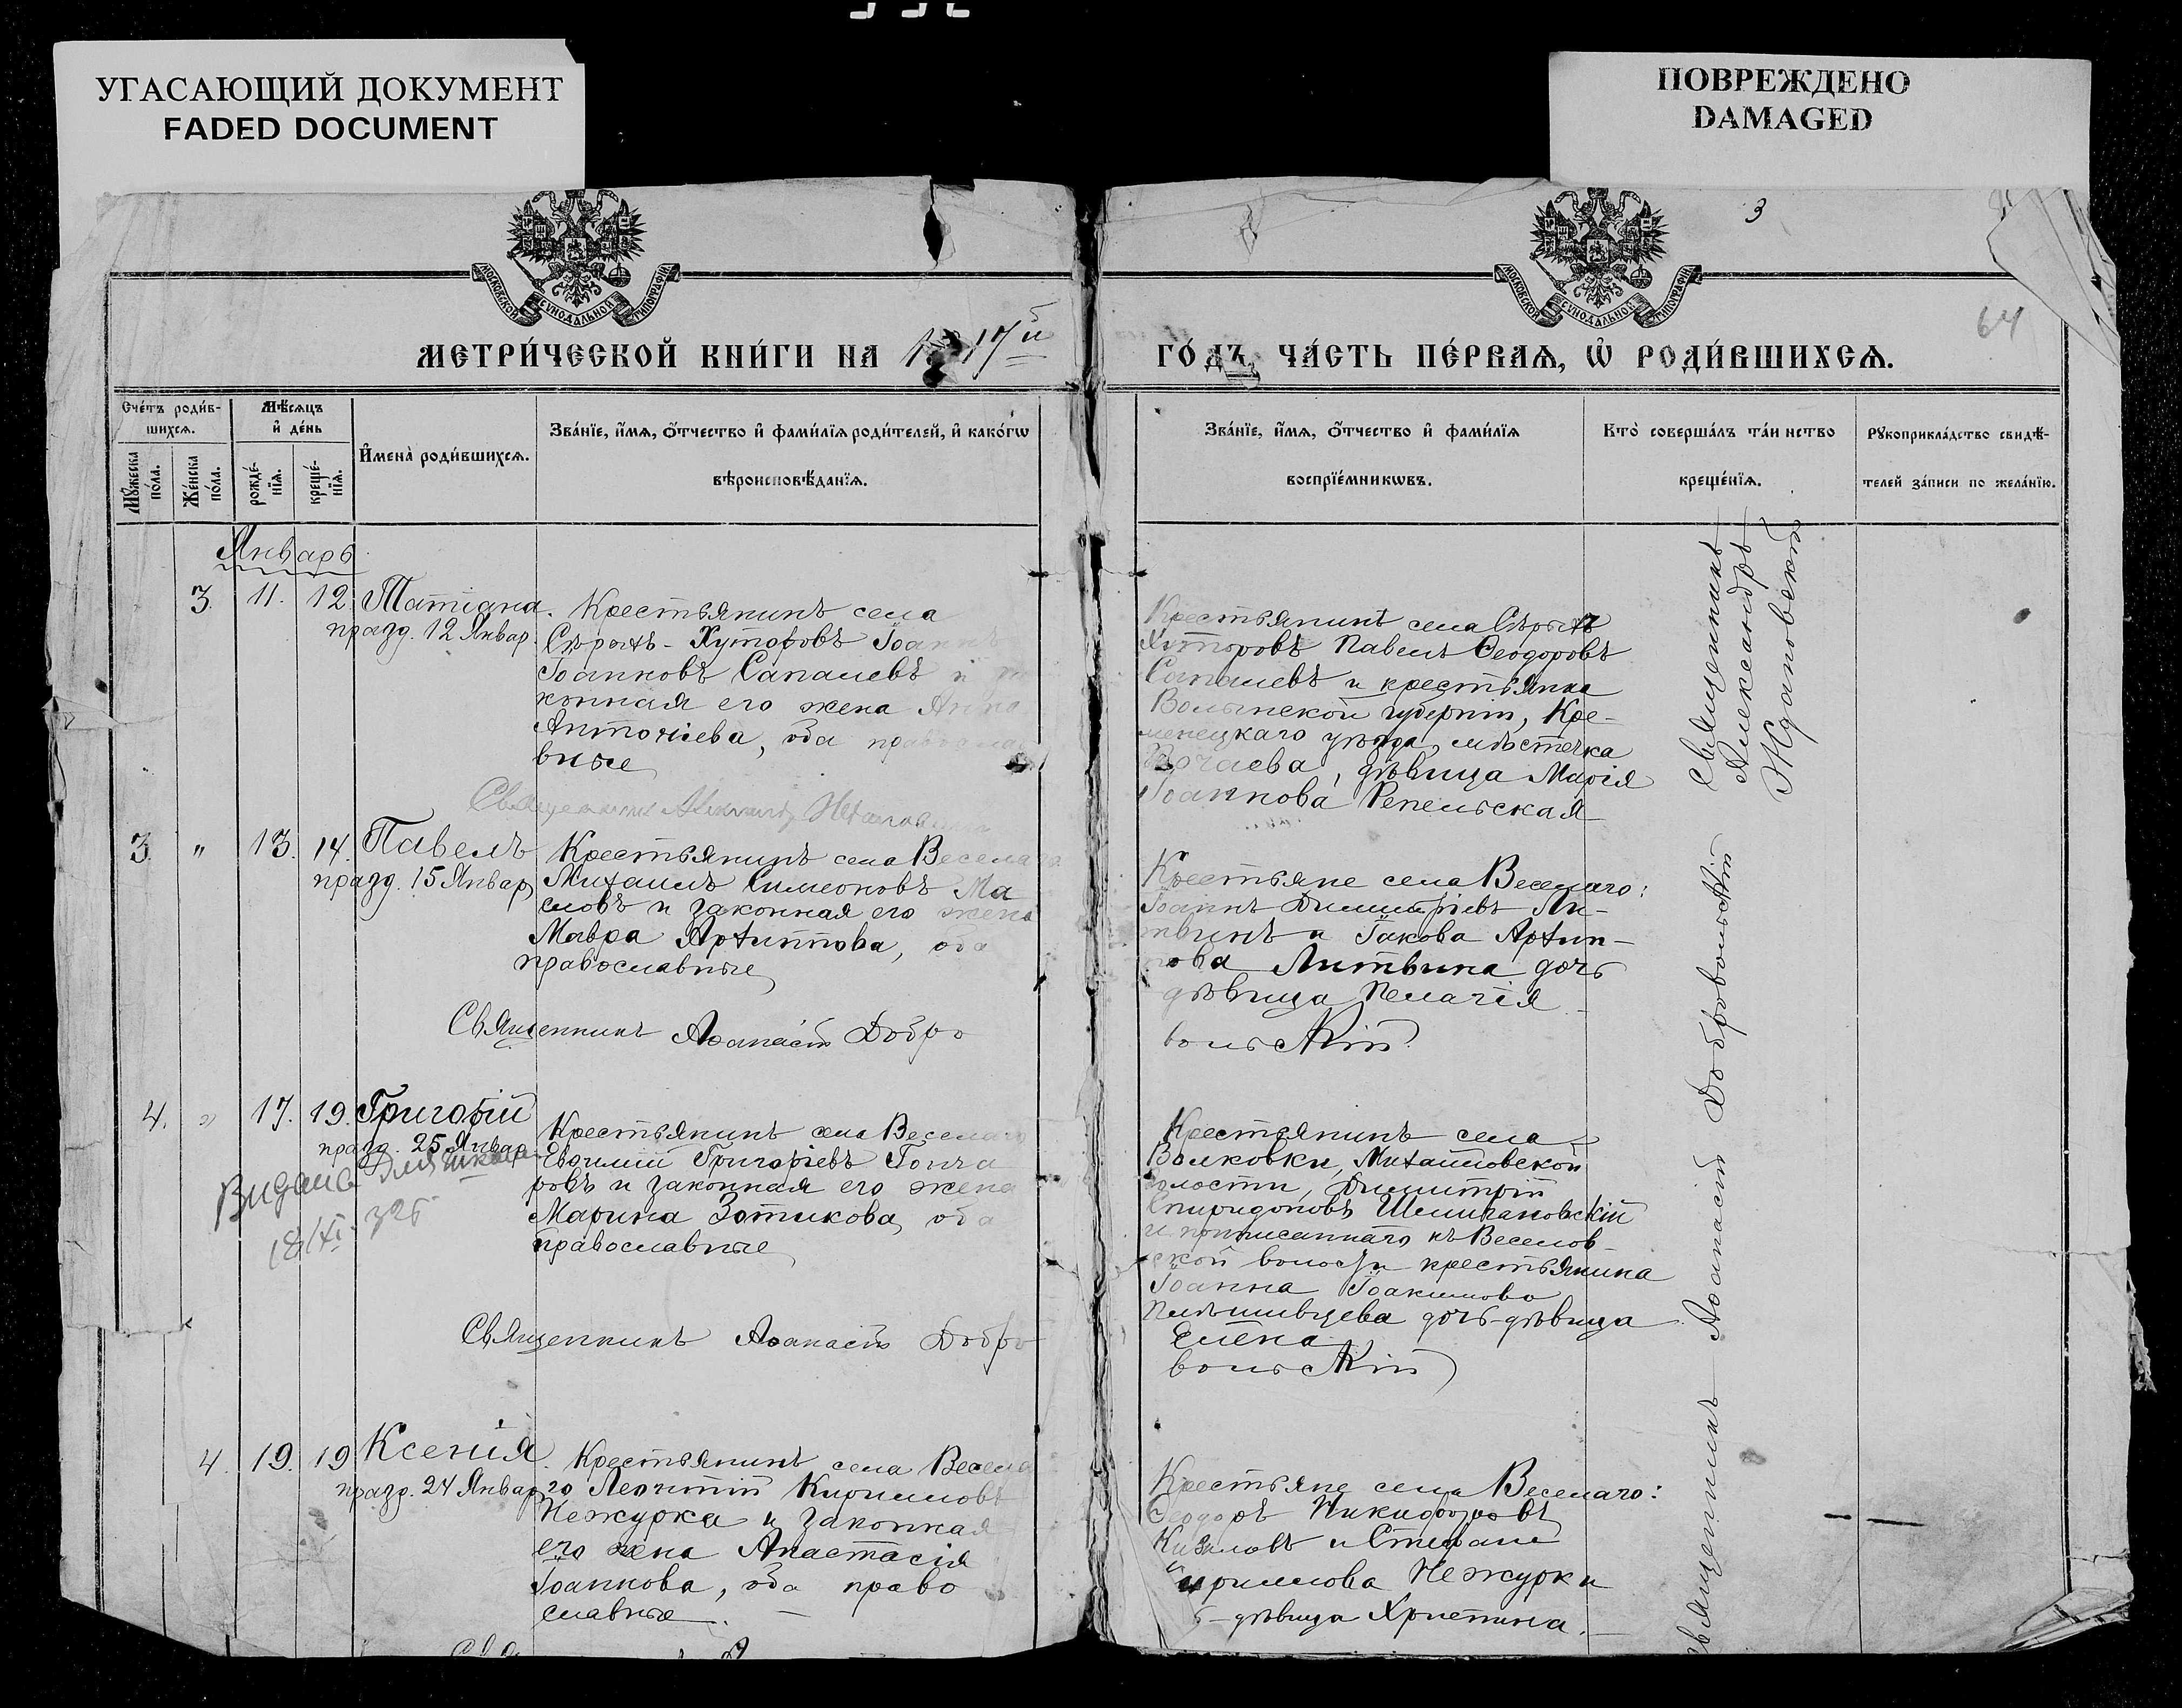 УГАСАЮЩИЙ ДОКУМЕНТ
FADED DOCUMENT
ПОВРЕЖДЕНО
DAMAGED
3
64
МОСКОВСКОЙ СѴНОДАЛЬНОЙ ТИПОГРАФІИ
МОСКОВСКОЙ СѴНОДАЛЬНОЙ ТИПОГРАФІИ
МЕТРИ́ЧЕСКОЙ КНИ́ГИ НА 1917й
ГО́ДЪ, ЧА́СТЬ ПЕ́РВАѦ, Ѡ҆ РОДИ́ВШИХСѦ.
Сче́тъ роди́в-
шихсѧ.
Мѹ́жеска
по́ла.
Же́нска
по́ла.
Мѣ́сѧцъ
и҆ де́нь
рожде́-
нїѧ.
креще́-
нїѧ.
И҆мена̀ роди́вшихсѧ.
Зва́нїе, и҆́мѧ, ѻ҆́тчество и҆ фами́лїѧ роди́телей, и҆ како́гѡ
вѣроисповѣ́данїѧ.
Зва́нїе, и҆́мѧ, ѻ҆́тчество и҆ фами́лїѧ
воспрїе́мникѡвъ.
Кто̀ соверша́лъ та́инство
креще́нїѧ.
Рѹкоприкла́дство свидѣ́-
телей за́писи по жела́нїю.
Январь
3. 11. 12. Татіана.
празд. 12 Январ.
Крестьянинъ села
Сѣрыхъ-Хуторовъ Іоаннъ
Іоанновъ Сапачевъ и за
конная его жена Анна
Антоніева, оба православ
вные
Священникъ Александръ Ждановскій
Крестьянинъ села Сѣрыхъ
Хуторовъ Павелъ Ѳеодоровъ
Сапачевъ и крестьянка
Волынской губерніи, Кре-
менецкаго уѣзда, мѣстечка
Почаева, дѣвица Марія
Іоаннова Репельская
Священникъ
Александръ
Ждановскій
3. " 13. 14. Павелъ
празд. 15 Январ
Крестьянинъ села Веселаго
Михаилъ Симеоновъ Ма
словъ и законная его жена
Мавра Архиппова, оба
православные
Священникъ Аѳанасій Добро
Крестьяне села Веселаго:
Іоаннъ Димитріевъ Ли-
твинъ и Іакова Архип-
пова Литвина дочь
дѣвица Пелагія
вольскій
4. " 17. 19. Григорій
празд. 25 Январ
Видана для школи
18/XI. 32г
Крестьянинъ села Веселаго
Евѳимій Григоріевъ Гонча
ровъ и законная его жена
Марина Зотикова, оба
православные
Священникъ Аѳанасій Добро
Крестьянинъ села
Волковки, Михайловской
волости, Димитрій
Спиридоновъ
и приписаннаго къ Веселов-
ской волости крестьянина
Іоанна Іоакимова
дочь-дѣвица
Елена
вольскій
4. 19. 19 Ксенія.
празд. 24 Январ
Крестьянинъ села Весела
го Леонтій Кирилловъ
Нежурка и законная
его жена Анастасія
Іоаннова, оба право
славные.
Крестьяне села Веселаго:
Ѳеодоръ Никифоровъ
и Стефана
Кириллова Нежурки
дѣвица Христина.
Священникъ Аѳанасій Добровольскій